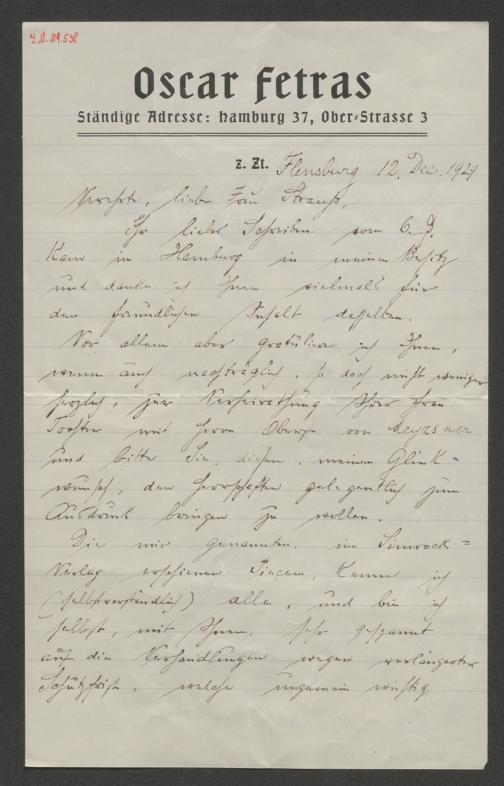 J.N. 119.538
Oscar Fetras
Ständige Adresse: Hamburg 37, Ober-Strasse 3
z. Zt. Flensburg 12. Dec. 1929
Verehrte, liebe Frau Strauß,
Ihr liebes Schreiben vom 6. d.
kam in Hamburg in meinen Besitz
und danke ich Ihnen vielmals für
den freundlichen Inhalt desselben.
Vor allem aber gratulire ich Ihnen,
wenn auch nachträglich, so doch nicht weniger
herzlich, zur Verheirathung Ihrer Frau
Tochter mit Herrn Oberst von Meyszner
und bitte Sie, diesen, meinen Glück=
wunsch, den Herrschaften gelegentlich zum
Ausdruck bringen zu wollen.
Die mir genannten, im Simrock=
Verlag erschienenen Piecen, kenne ich
(selbstverständlich) alle, und bin ich
selbst, mit Ihnen, sehr gespannt
auf die Verhandlungen wegen verlängerter
Schutzfrist, welche ungemein wichtig